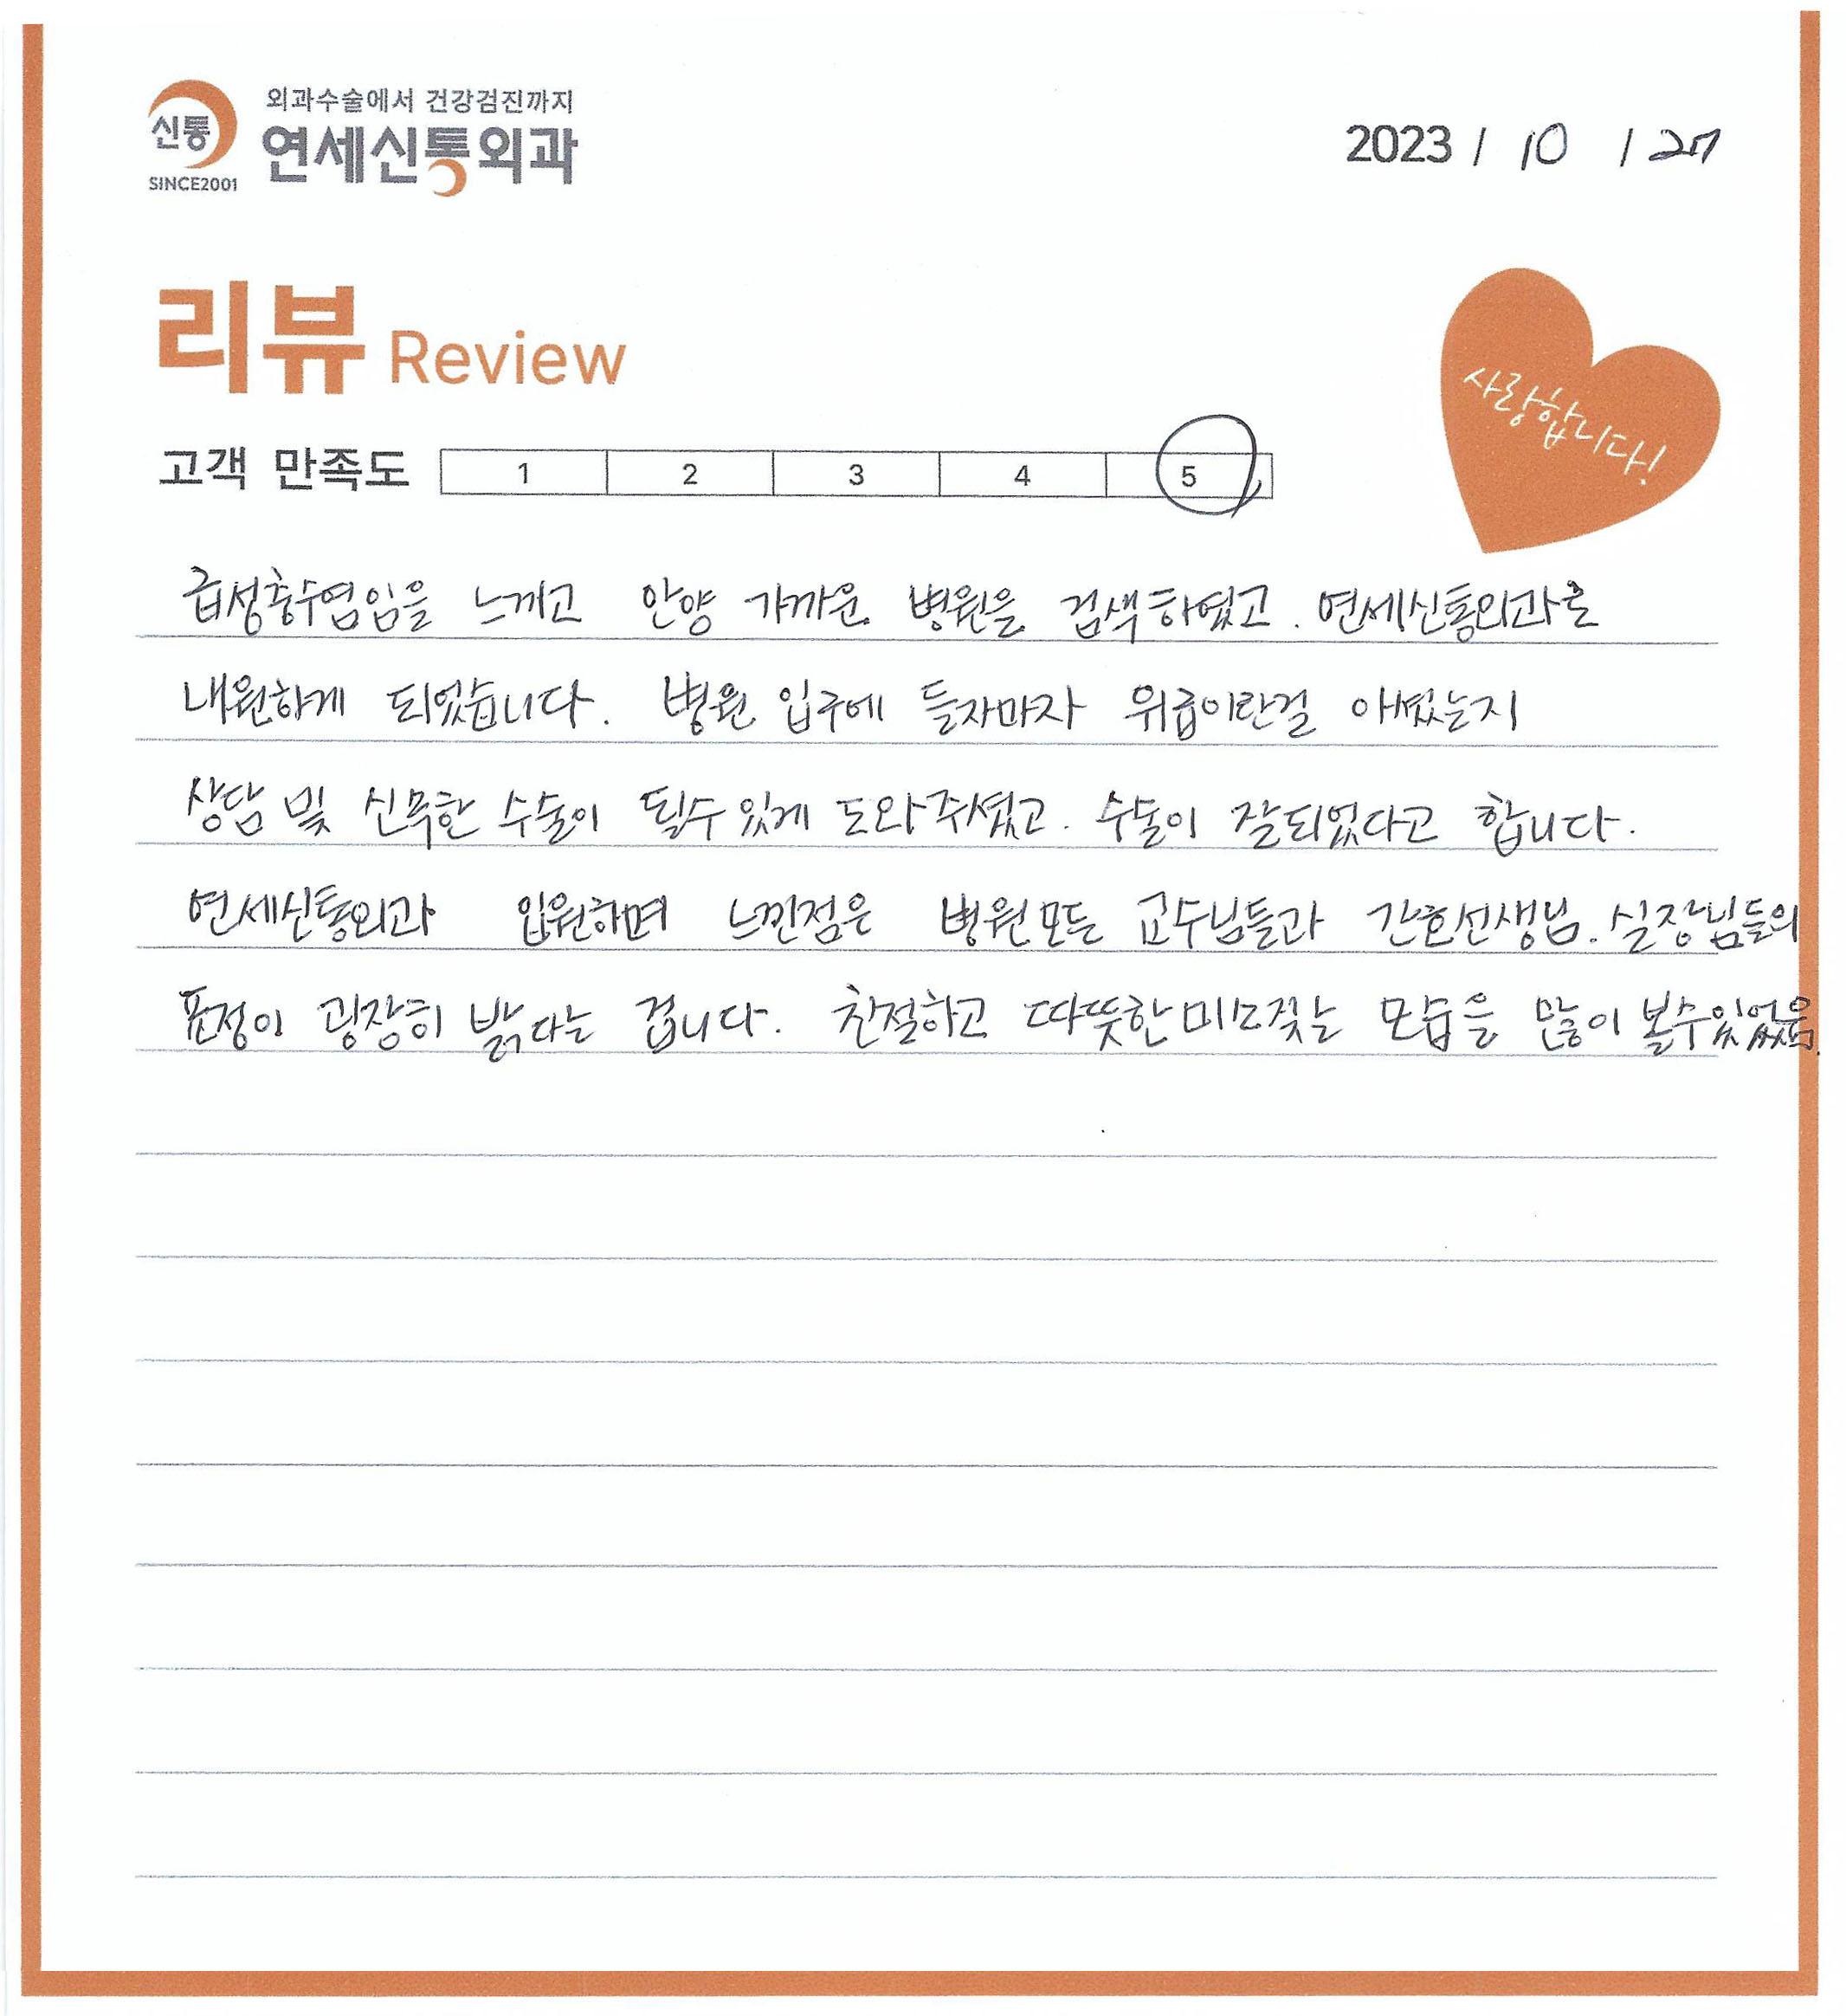 신통
SINCE2001
외과수술에서 건강검진까지
연세신통외과
2023 / 10 / 27
리뷰 Review
사랑합니다!
고객 만족도 1 2 3 4 5
급성충수염임을 느끼고 안양 가까운 병원을 검색하였고. 연세신통외과로
내원하게 되었습니다. 병원 입구에 들자마자 위급이란걸 아셨는지
상담 및 신속한 수술이 될수있게 도와주셨고. 수술이 잘되었다고 합니다.
연세신통외과 입원하며 느낀점은 병원모든 교수님들과 간호선생님. 실장님들의
표정이 굉장히 밝다는 겁니다. 친절하고 따뜻한미소짓는 모습을 많이 볼수있었음.